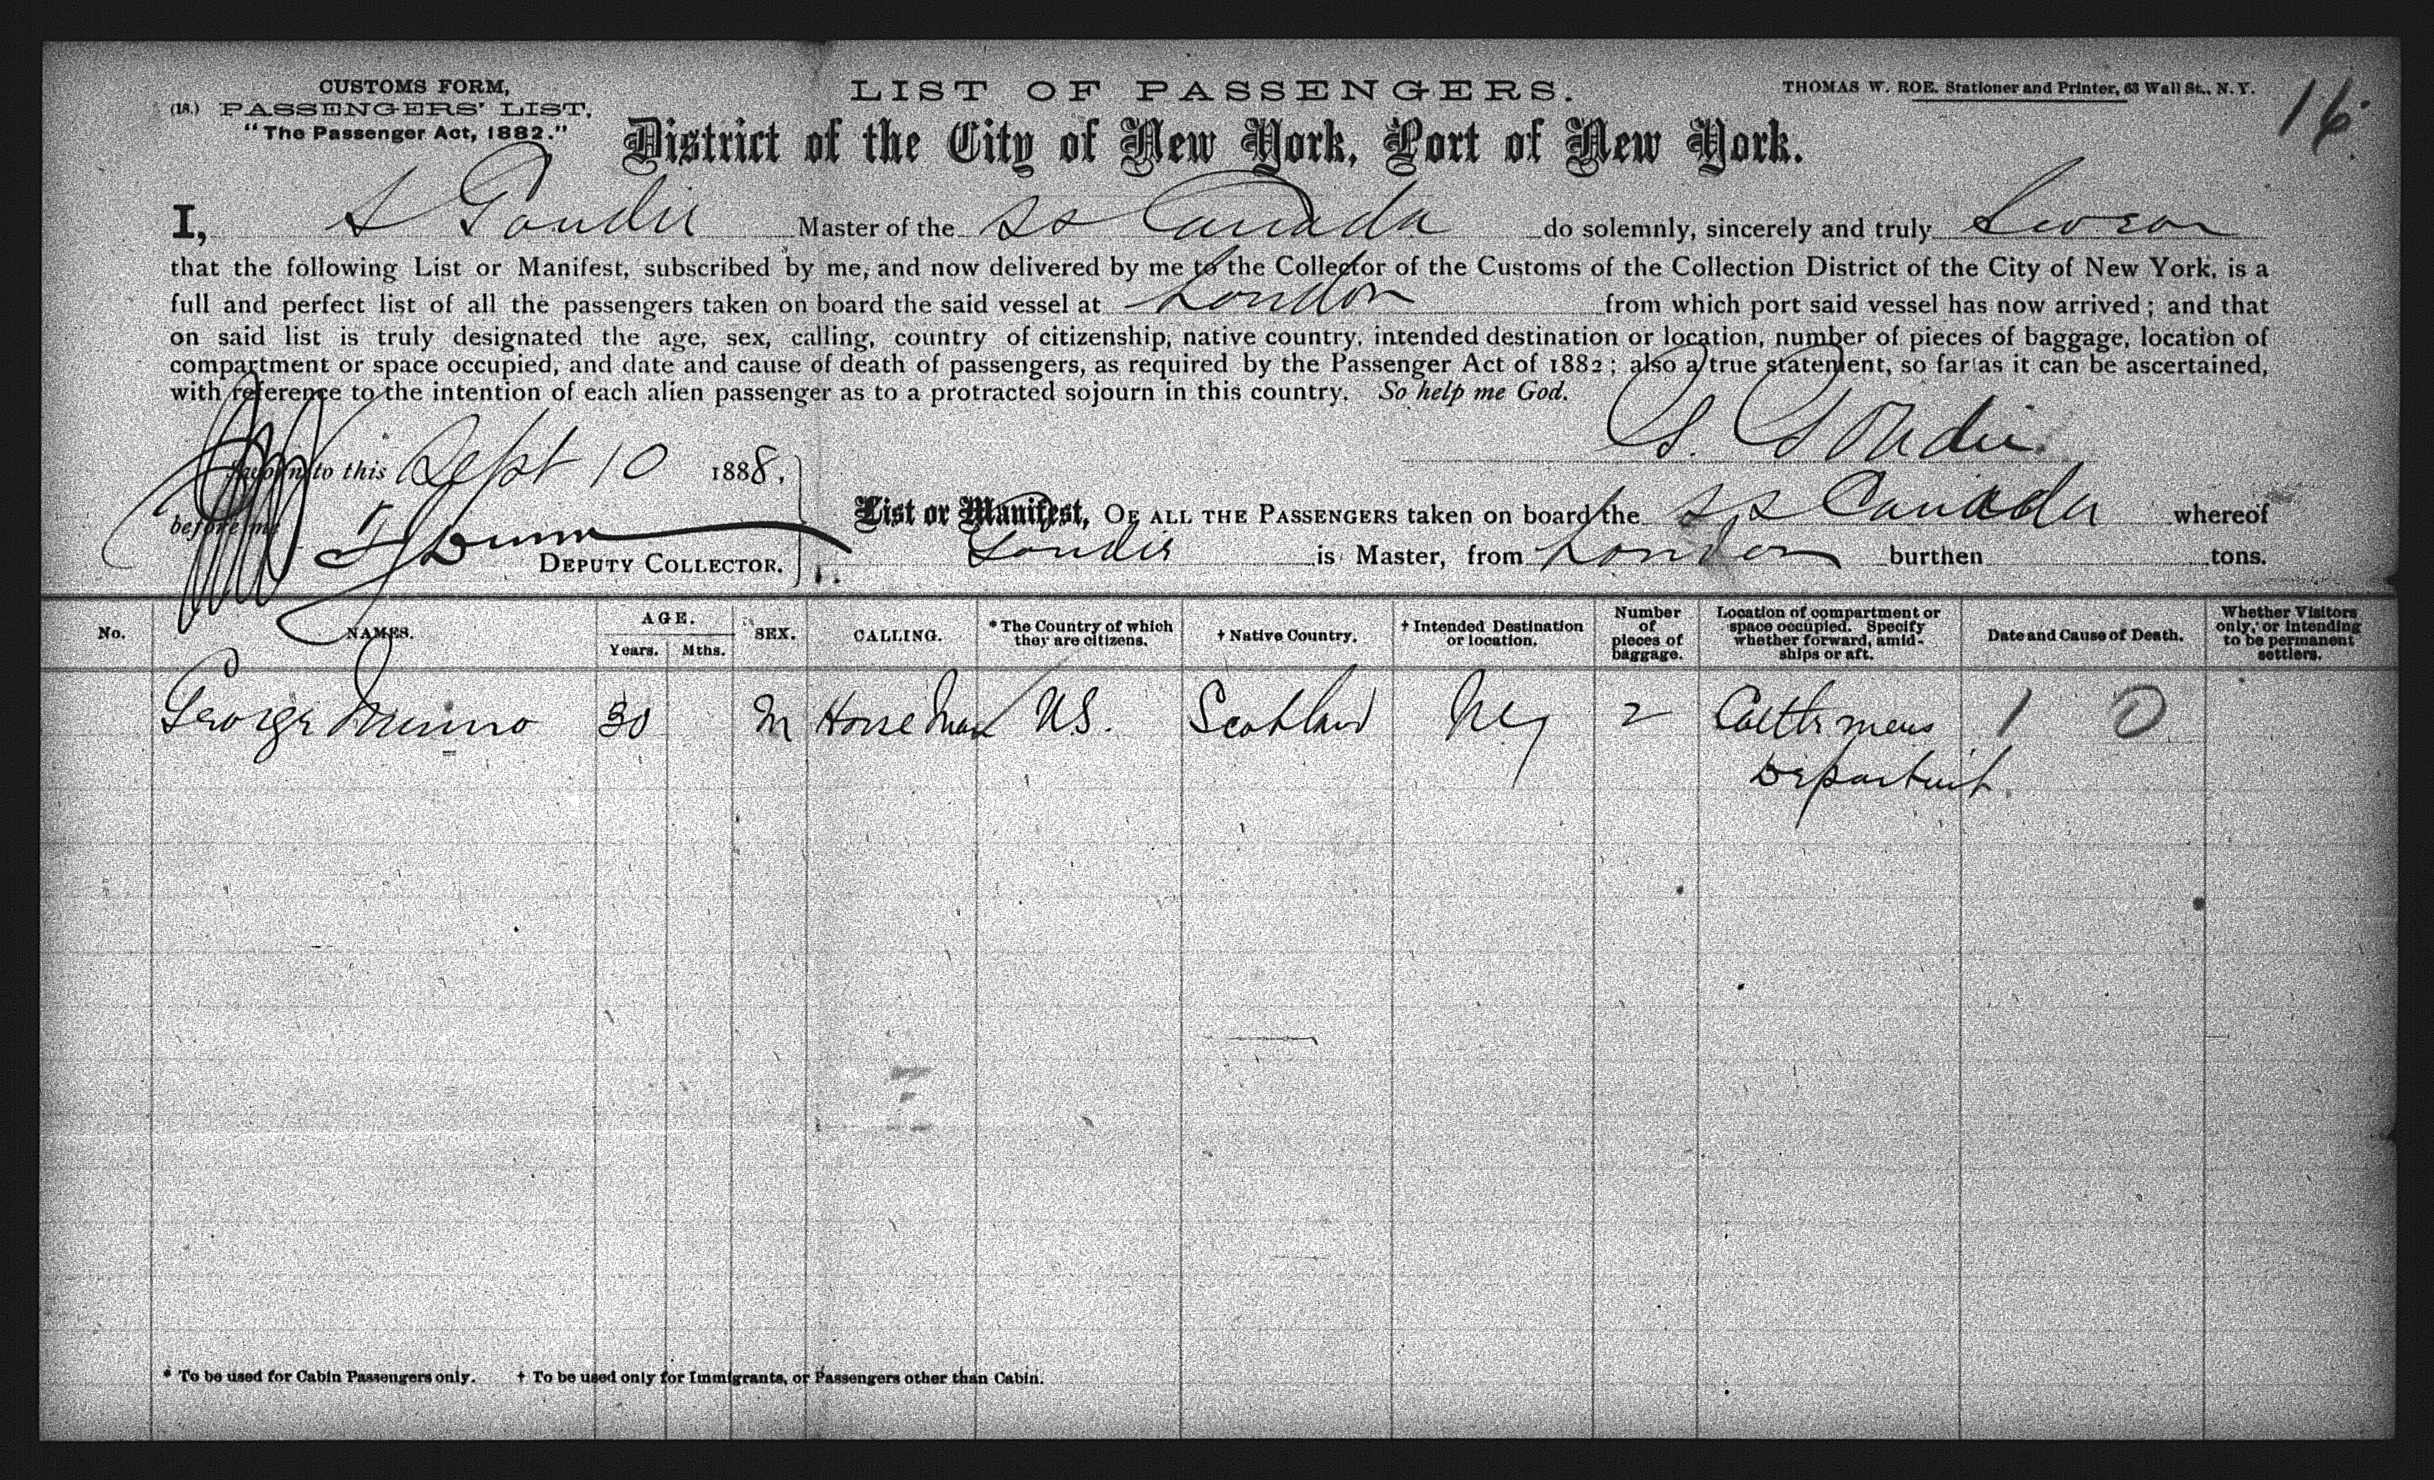 CUSTOMS FORM,
(18.) PASSENGERS' LIST,
"The Passenger Act, 1882."
LIST OF PASSENGERS.
THOMAS W. ROE. Stationer and Printer, 63 Wall St., N. Y.
16
District of the City of New York, Port of New York.
I, S Goudie Master of the SS Canada do solemnly, sincerely and truly Swear
that the following List or Manifest, subscribed by me, and now delivered by me to the Collector of the Customs of the Collection District of the City of New York, is a
full and perfect list of all the passengers taken on board the said vessel at London from which port said vessel has now arrived; and that
on said list is truly designated the age, sex, calling, country of citizenship, native country, intended destination or location, number of pieces of baggage, location of
compartment or space occupied, and date and cause of death of passengers, as required by the Passenger Act of 1882; also a true statement, so far as it can be ascertained,
with reference to the intention of each alien passenger as to a protracted sojourn in this country. So help me God.
S. Goudie
Sworn to this Sept 10 1888,
before me
Dunn
DEPUTY COLLECTOR.
List or Manifest, OF ALL THE PASSENGERS taken on board the SS Canada whereof
Goudie is Master, from London burthen tons.
No. NAMES. AGE. Years. Mths. SEX. CALLING. * The Country of which they are citizens. † Native Country. † Intended Destination or location. Number of pieces of baggage. Location of compartment or space occupied. Specify whether forward, amidships or aft. Date and Cause of Death. Whether Visitors only, or intending to be permanent settlers.
George Munro 30 M Horse Man U.S. Scotland NY 2 Cattlemens 1 0
Department.
* To be used for Cabin Passengers only. † To be used only for Immigrants, or Passengers other than Cabin.